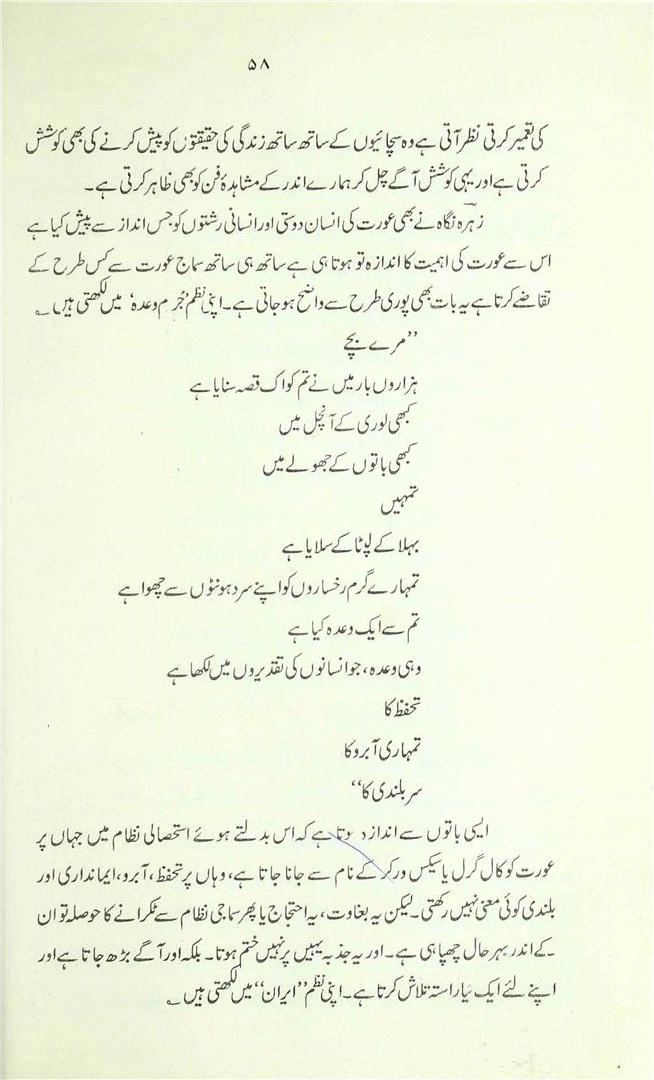 ۵۸
کی تعمیر کرتی نظر آتی ہے وہ سچائیوں کے ساتھ ساتھ زندگی کی حقیقتوں کو پیش کرنے کی بھی کوشش
کرتی ہے اور یہی کوشش آگے چل کر ہمارے اندر کے مشاہدۂ فن کو بھی ظاہر کرتی ہے۔
زہرہ نگاہ نے بھی عورت کی انسان دوستی اور انسانی رشتوں کو جس انداز سے پیش کیا ہے
اس سے عورت کی اہمیت کا اندازہ تو ہوتا ہی ہے ساتھ ہی ساتھ سماج عورت سے کس طرح کے
تقاضے کرتا ہے یہ بات بھی پوری طرح سے واضح ہو جاتی ہے۔ اپنی نظم ’جُرمِ وعدہ‘ میں لکھتی ہیں ؂
’’مرے بچے
ہزاروں بار میں نے تم کو اک قصہ سنایا ہے
کبھی لوری کے آنچل میں
کبھی باتوں کے جھولے میں
تمہیں
بہلا کے لپٹا کے سلایا ہے
تمہارے گرم رخساروں کو اپنے سرد ہونٹوں سے چھوا ہے
تم سے ایک وعدہ کیا ہے
وہی وعدہ، جو انسانوں کی تقدیروں میں لکھا ہے
تحفظ کا
تمہاری آبرو کا
سر بلندی کا‘‘
ایسی باتوں سے اندازہ ہوتا ہے کہ اس بدلتے ہوئے استحصالی نظام میں جہاں پر
عورت کو کال گرل یا سیکس ورکر کے نام سے جانا جاتا ہے، وہاں پر تحفظ، آبرو، ایمانداری اور
بلندی کوئی معنی نہیں رکھتی۔ لیکن یہ بغاوت، یہ احتجاج یا پھر سماجی نظام سے ٹکرانے کا حوصلہ تو ان
کے اندر بہر حال چھپا ہی ہے۔ اور یہ جذبہ یہیں پر نہیں ختم ہوتا۔ بلکہ اور آگے بڑھ جاتا ہے اور
اپنے لئے ایک نیا راستہ تلاش کرتا ہے۔ اپنی نظم ’’ایران‘‘ میں لکھتی ہیں ؂